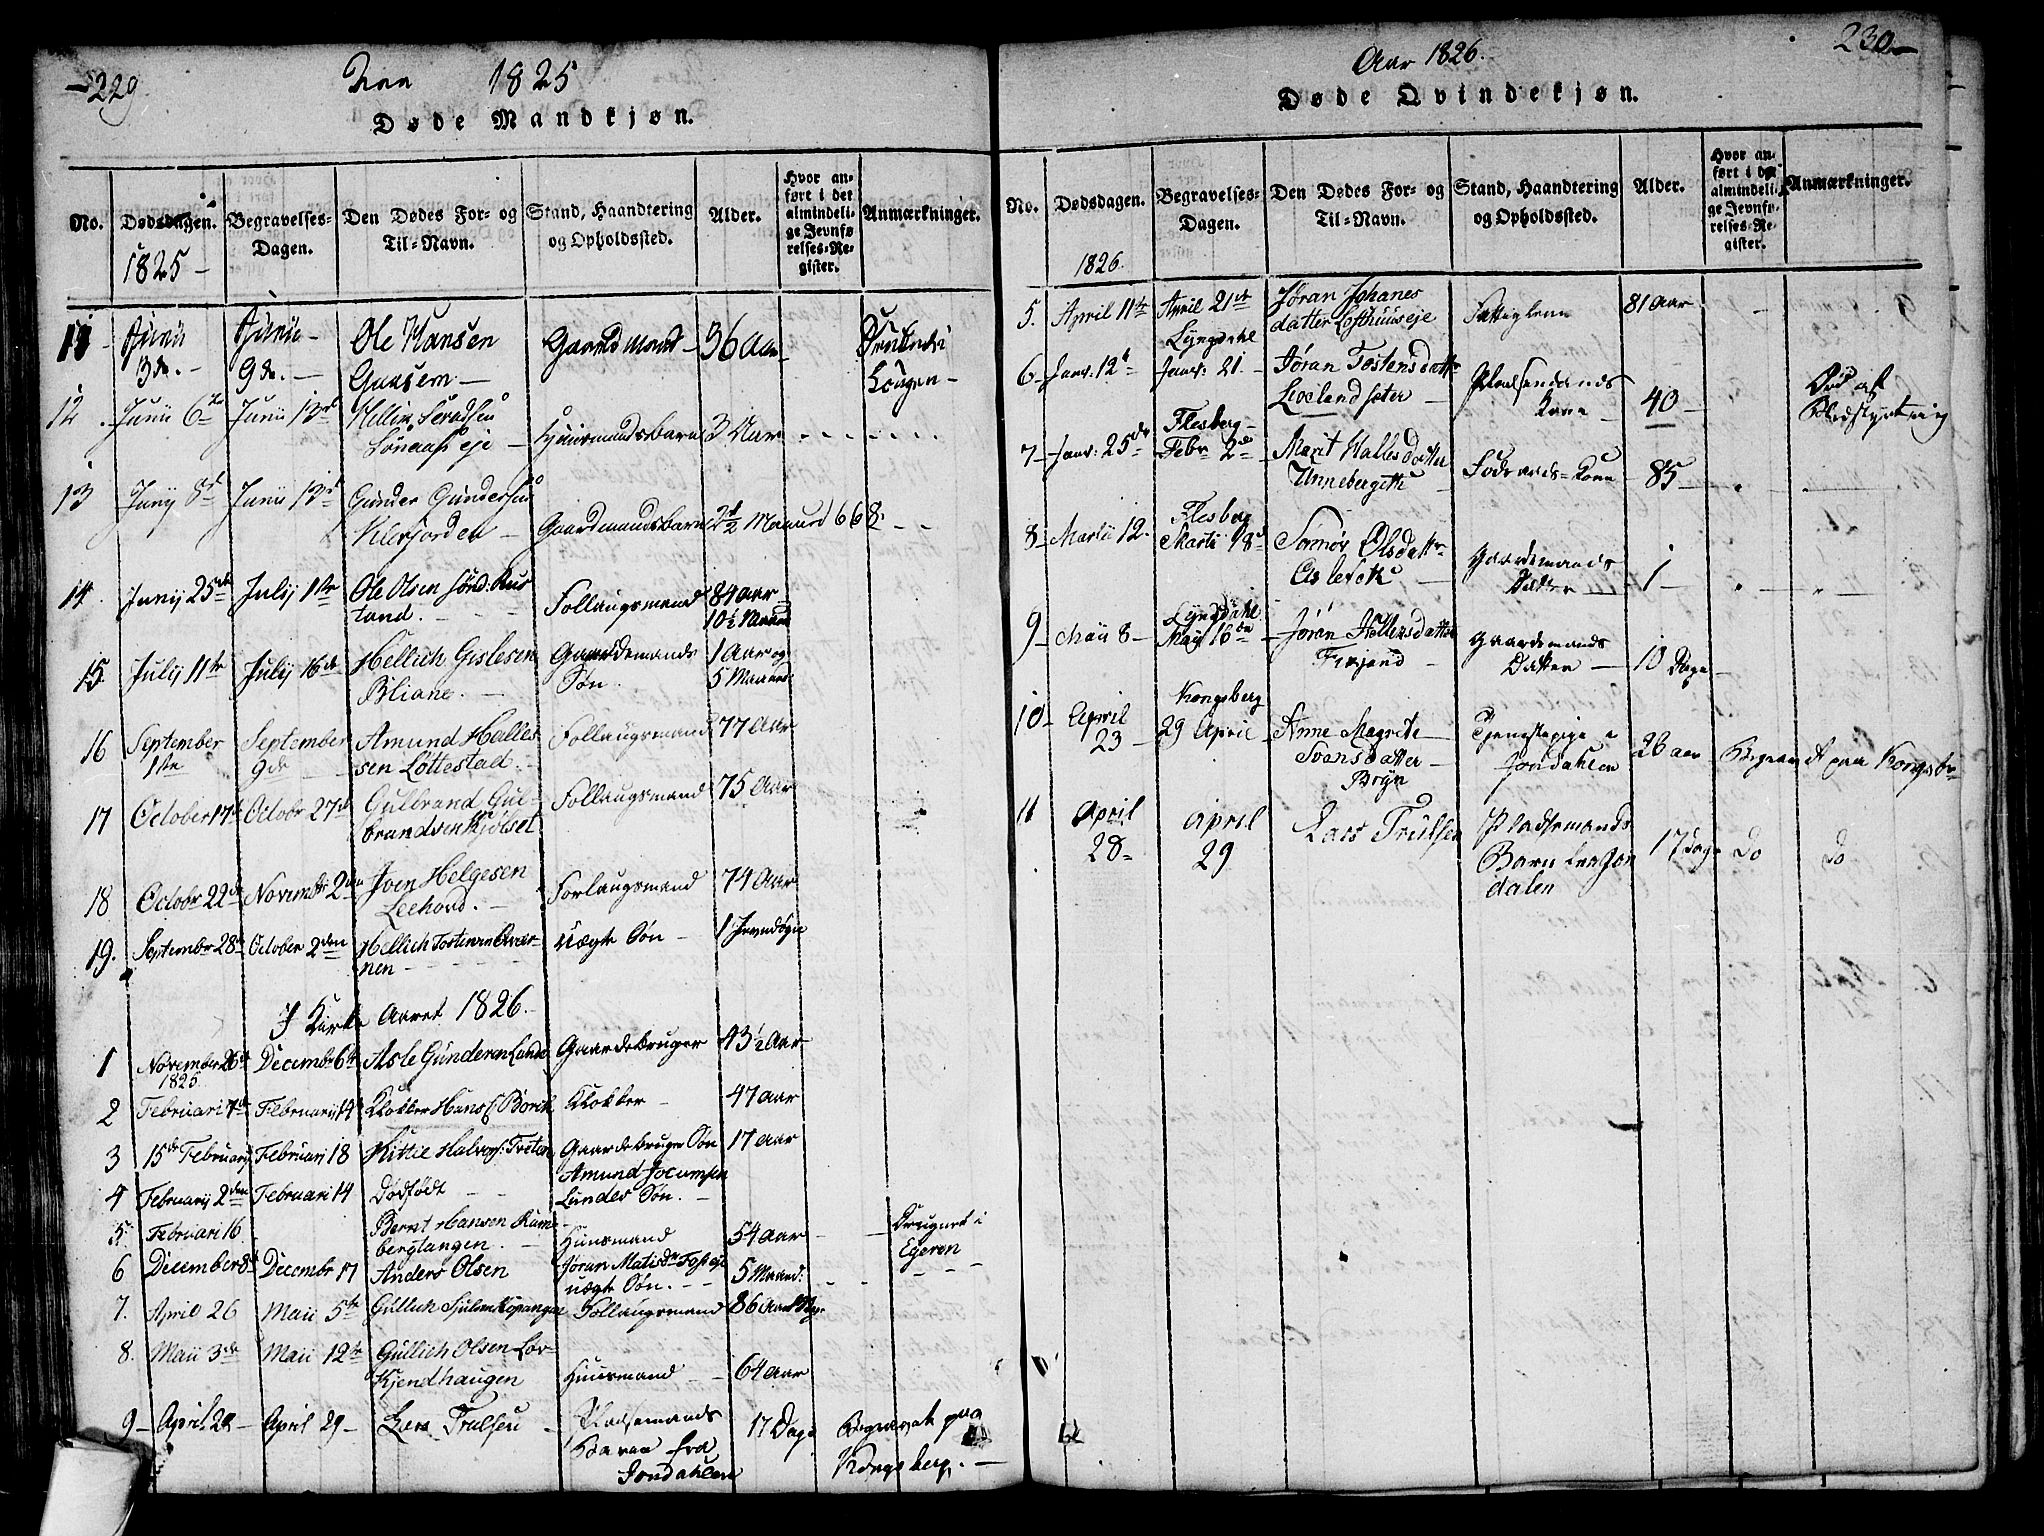 229
Aar 1825
Døde Mandkjøn.
No.
Dødsdagen.
Begravelses-
Dagen.
Den Dødes For- og
Til-Navn.
Stand, Haandtering
og Opholdssted.
Alder.
Hvor an-
ført i det
almindeli-
ge Jevnfø-
relses-Re-
gister.
Anmærkninger.
1825
11 Junii 3de. Junii 9de.
Ole Hansen
Gaasem
Gaardmand 56 Aar
Laugen
12 Junii 6te Junii 13de
Huusmandsbarn 3 Aar
13 Junij 8de Junii 13de
Gunder Gundersen
Gaardmandsbarn 2½ Maaned 668.
14. Junij 25de Julij 1ste Ole Olsen Sønd: Rus
tand.
Follaugsmand 84 Aar
10½ Maaned
15. Julij 11te Julij 16de Hellich Gislesen
Bliane.
Gaardemands
Søn.
1 Aar og
5 Maaned:
16 September
1ste
September
9de
Amund Halles
sen Løttestad.
Follaugsmand 77 Aar
17 October 17de Octobr 27de Gulbrand Gul-
brandsen Kjølset
Follaugsmand 75 Aar
18 Octobr 22de Novembr 2den Joen Helgesen
Forlaugsmand 74 Aar
19. Septembr 28de October 2den Hellich Tostensen Qvær-
nen
uægte Søn 1 Jevndøgn
I Kirke Aaret 1826.
1 November 26de
1825.
Decembr 6te Asle Gundersen Lande Gaardebruger 43½ Aar
2 Februari 7de Februarij 14 Klokker Hans Børik Klokker 47 Aar
3 15de Februarij Februari 18 Kittil Halvors: Treten Gaardebruger Søn 17 Aar
4 Februarij 2den Februari 14 Dødfødt
Amund Jocumsen
Lundes Søn.
5. Februari 16 Bernt Hansen Ram-
bergtangen.
Huusmand 54 Aar
Drugnet i
Egeren
6 December 8de Decembr 17 Anders Olsen
uægte Søn. 5 Maaned:
7. April 26 Maii 5te Gullich Follaugsmand 86 Aar
8. Maii 3de Maii 12te Gullich Olsen Lov-
Kjendhaugen
Huusmand 64 Aar
9 April 28 April 29 Lars Trulsen
Pladsemands
Barn fra
Jondahlen
17 Dage
Begravet paa
Kongsberg.
230
Aar 1826.
Døde Qvindekjøn.
No.
Dødsdagen.
Begravelses-
Dagen.
Den Dødes For- og
Til-Navn.
Stand, Haandtering
og Opholdssted.
Alder.
Hvor an-
ført i det
almindeli-
ge Jevnfø-
relses-Re-
gister.
Anmærkninger.
1826.
5. April 11te April 21de
Jøran Johanes
datter Lofthuuseje
81 Aar
Lyngdahl
6 Janr. 12te Janr: 21. Jøran Tostensdatter
Kone
40
Død af
Blodstyrtning
Flesberg
7 Janr: 25de Febr 2de Marit Hallesdatter
85
Flesberg
8 Martii 12. Martii 18de
Olsdatter
Gaardemands
Datter
1
Lyngdahl
9 Maii 8 Maii 16de Jøran
Gaardemands
Datter
10 Dage
Kongsberg
10 April
23
29 April
Anne Magrete
Svensdatter
Bryn
Tjenestepige i
Jondahlen
26 aar
Begravet paa Kongsberg
11 April
28
April
29
Lars Trulsen
Pladsemands
Barn fra Jon
dalen
17 Dage
Do
Do